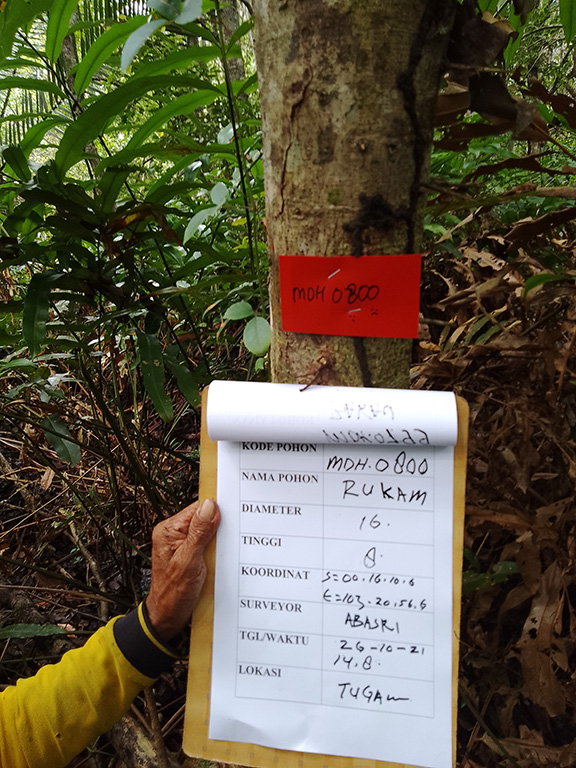 MDH 0800
KODE POHON MDH.0800
NAMA POHON RUKAM
DIAMETER 16.
TINGGI 8.
KOORDINAT S=00.16.10.6
E=103.20.56.6
SURVEYOR ABASRI
TGL/WAKTU 26-10-21
14.8.
LOKASI TUGAW